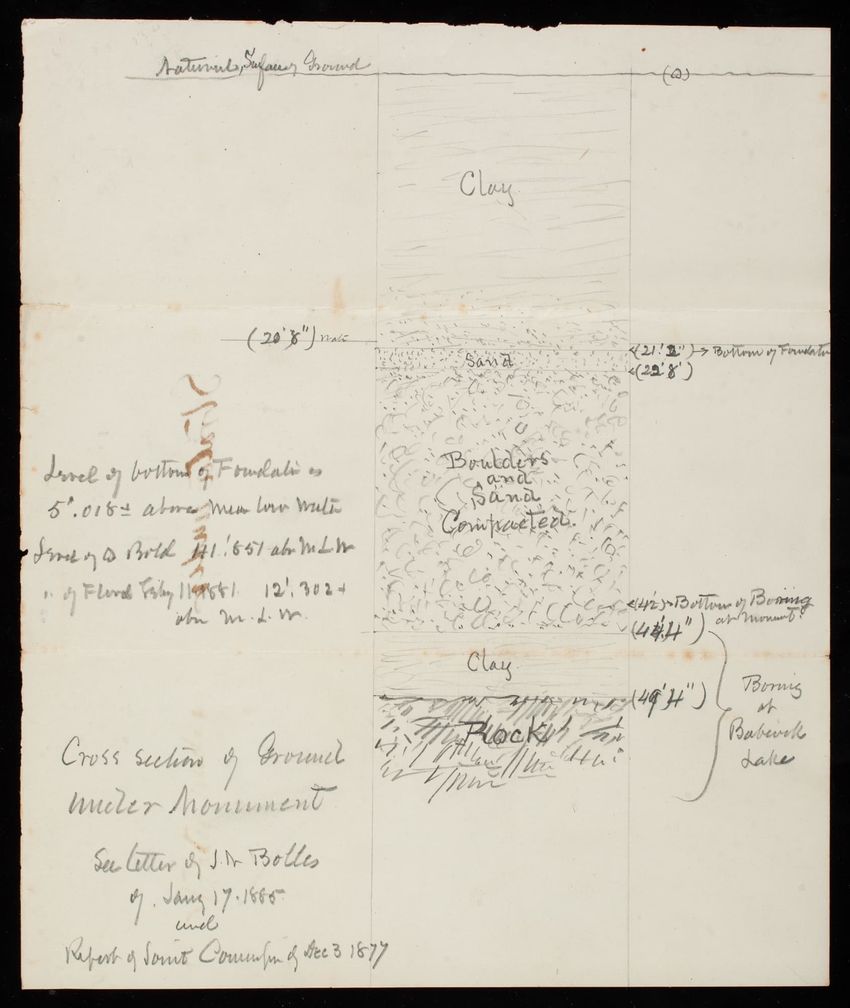 Natural, Surface of Ground
(a)
Clay
(20' 8") Water
Sand
(21' 2") → Bottom of Foundation
(22' 8')
Boulders
and
Sand
Compacted.
Level of bottom of Foundation is
5'.018± above mean low water
Level of Bold 41'.851 abv M.L.W
" of Flood 1881 12'.302+
abv M.L.W.
Bottom of Boring
at Monument.
(44' 4")
Clay
(49' 4")
Rock
Boring
at
Babcock
Lake
Cross section of Ground
under Monument
See letter of J. Bolles
of Jany 17. 1885
and
Report of Joint Commission of Dec 3 1877